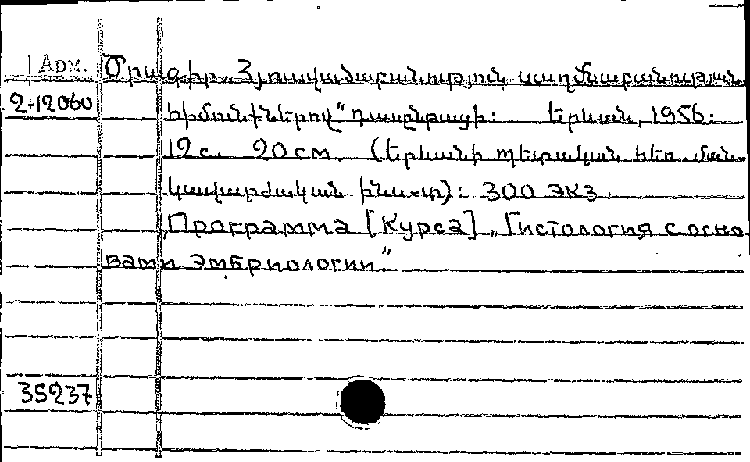 Арм. Ծրագիր „Հյուսվածաբանություն սաղմնաբանության
2-12060 հիմունքներով" դասընթացի: Երևան, 1956:
12с. 20см. (Երևանի պետական հեռ. ման-
կավարժական ինստ): 300 экз.
„Программа [Курса] „Гистология с осно-
вами эмбриологии"
35237